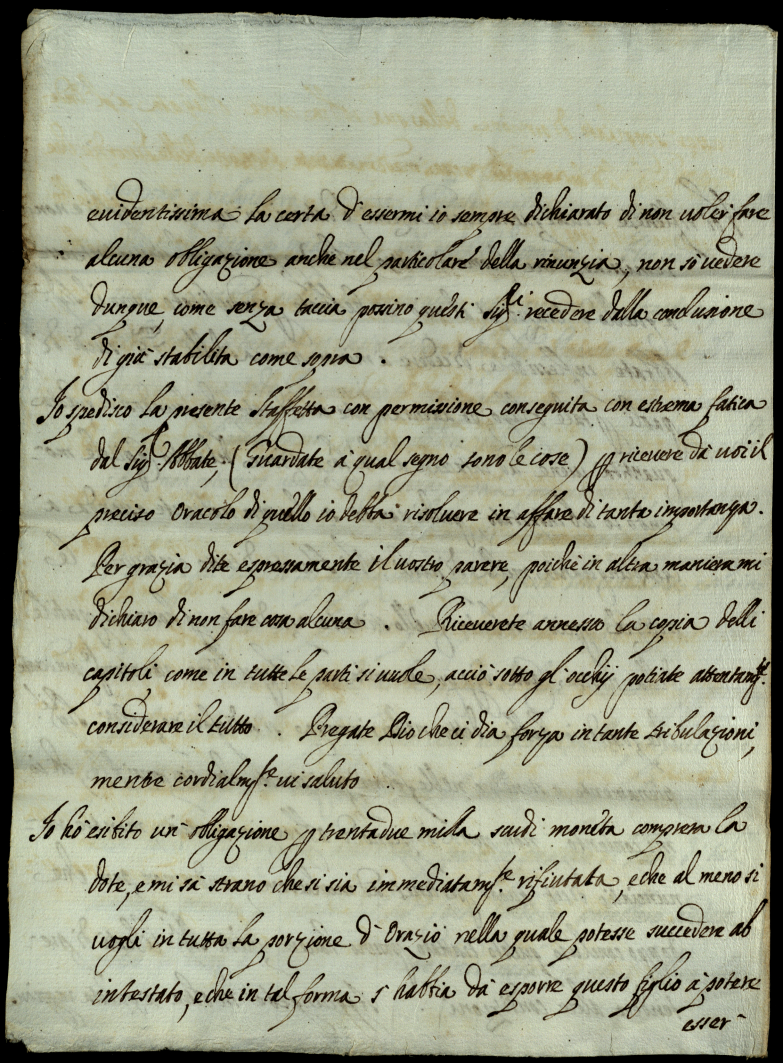 euidentissima la certa d'essermi io sempre dichiarato di non uoler fare
alcuna obligazione anche nel particolare della rinunzia, non sò uedere
dunque, come senza taccia possino questi Sig.ri recedere dalla conclusione
di già stabilita come sopra.
Io spedisco la presente staffetta con permissione conseguita con estrema fatica
dal Sig.r Abbate, (Guardate à qual segno sono le cose) p riceuere dà uoi il
preciso oracolo di quello io debba risoluere in affare di tanta importanza.
Per grazia dite espressamente il uostro parere, poiche in altra maniera mi
dichiaro di non fare cosa alcuna. Riceuerete annessa la copia delli
capitoli, come in tutte le parti si uuole, acciò sotto gl'occhij potiate attentam.te
considerare il tutto. Pregate Dio che ci dia forza in tante tribulazioni,
mentre cordialm.te ui saluto
Io hò esibito un'obligazione p trentadue milla scudi moneta compresa la
dote, e mi sà strano che si sia immediatam.te rifiutata, e che al meno si
uogli in tutta la porzione d'Orazio nella quale potesse succedere ab
intestato, e che in tal forma s'habbia dà esporre questo figlio à potere
esser